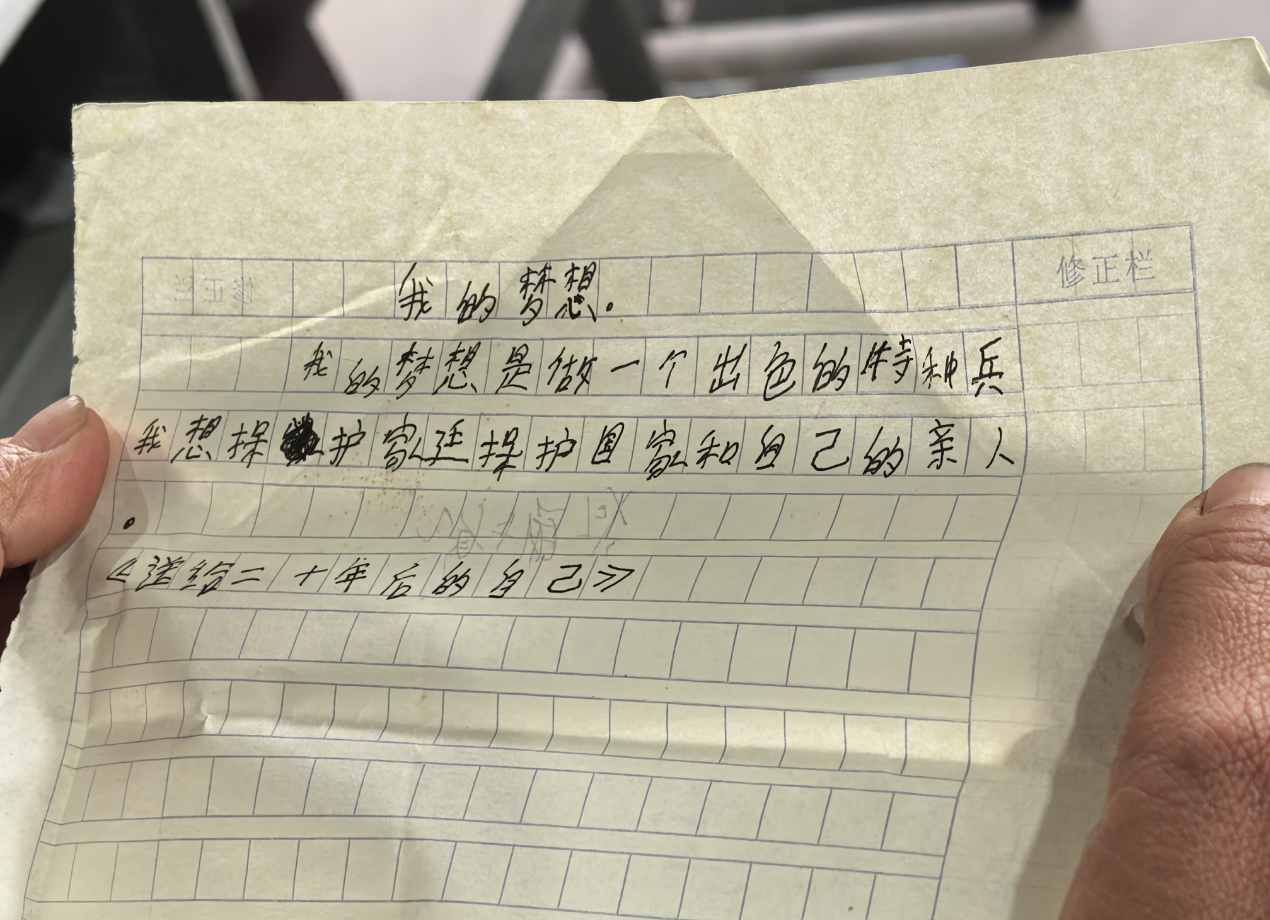 我的梦想。
修正栏
我的梦想是做一个出色的特种兵
我想保护家廷保护国家和自己的亲人
。
《送给二十年后的自己》